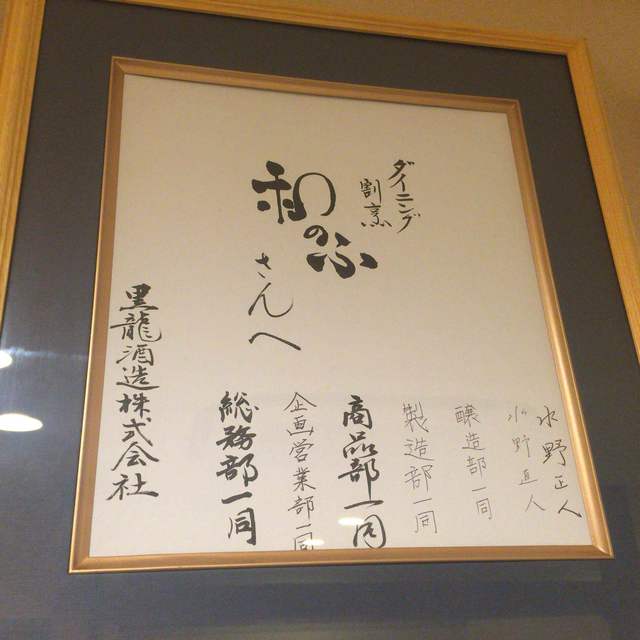 ダイニング
割烹
和のふ
さんへ
水野正人
水野直人
醸造部一同
製造部一同
商品部一同
企画営業部一同
総務部一同
黒龍酒造株式会社